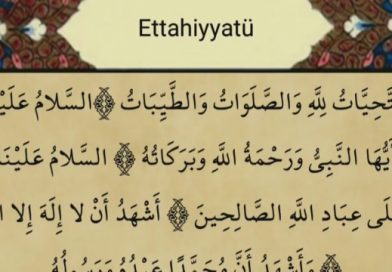 Ettahiyyatü
تَّحِيَّاتُ لِلّٰهِ وَالصَّلَوَاتُ وَالطَّيِّبَاتُ ۞ السَّلَامُ عَلَيْ
أَيُّهَا النَّبِىُّ وَرَحْمَةُ اللَّهِ وَبَرَكَاتُهُ ۞ السَّلَامُ عَلَيْنَا
لَى عِبَادِ اللَّهِ الصَّالِحِينَ ۞ أَشْهَدُ أَنْ لَا إِلَهَ إِلَّا ا
۞ وَأَشْهَدُ أَنَّ مُحَمَّدًا عَبْدُهُ وَرَسُولُهُ